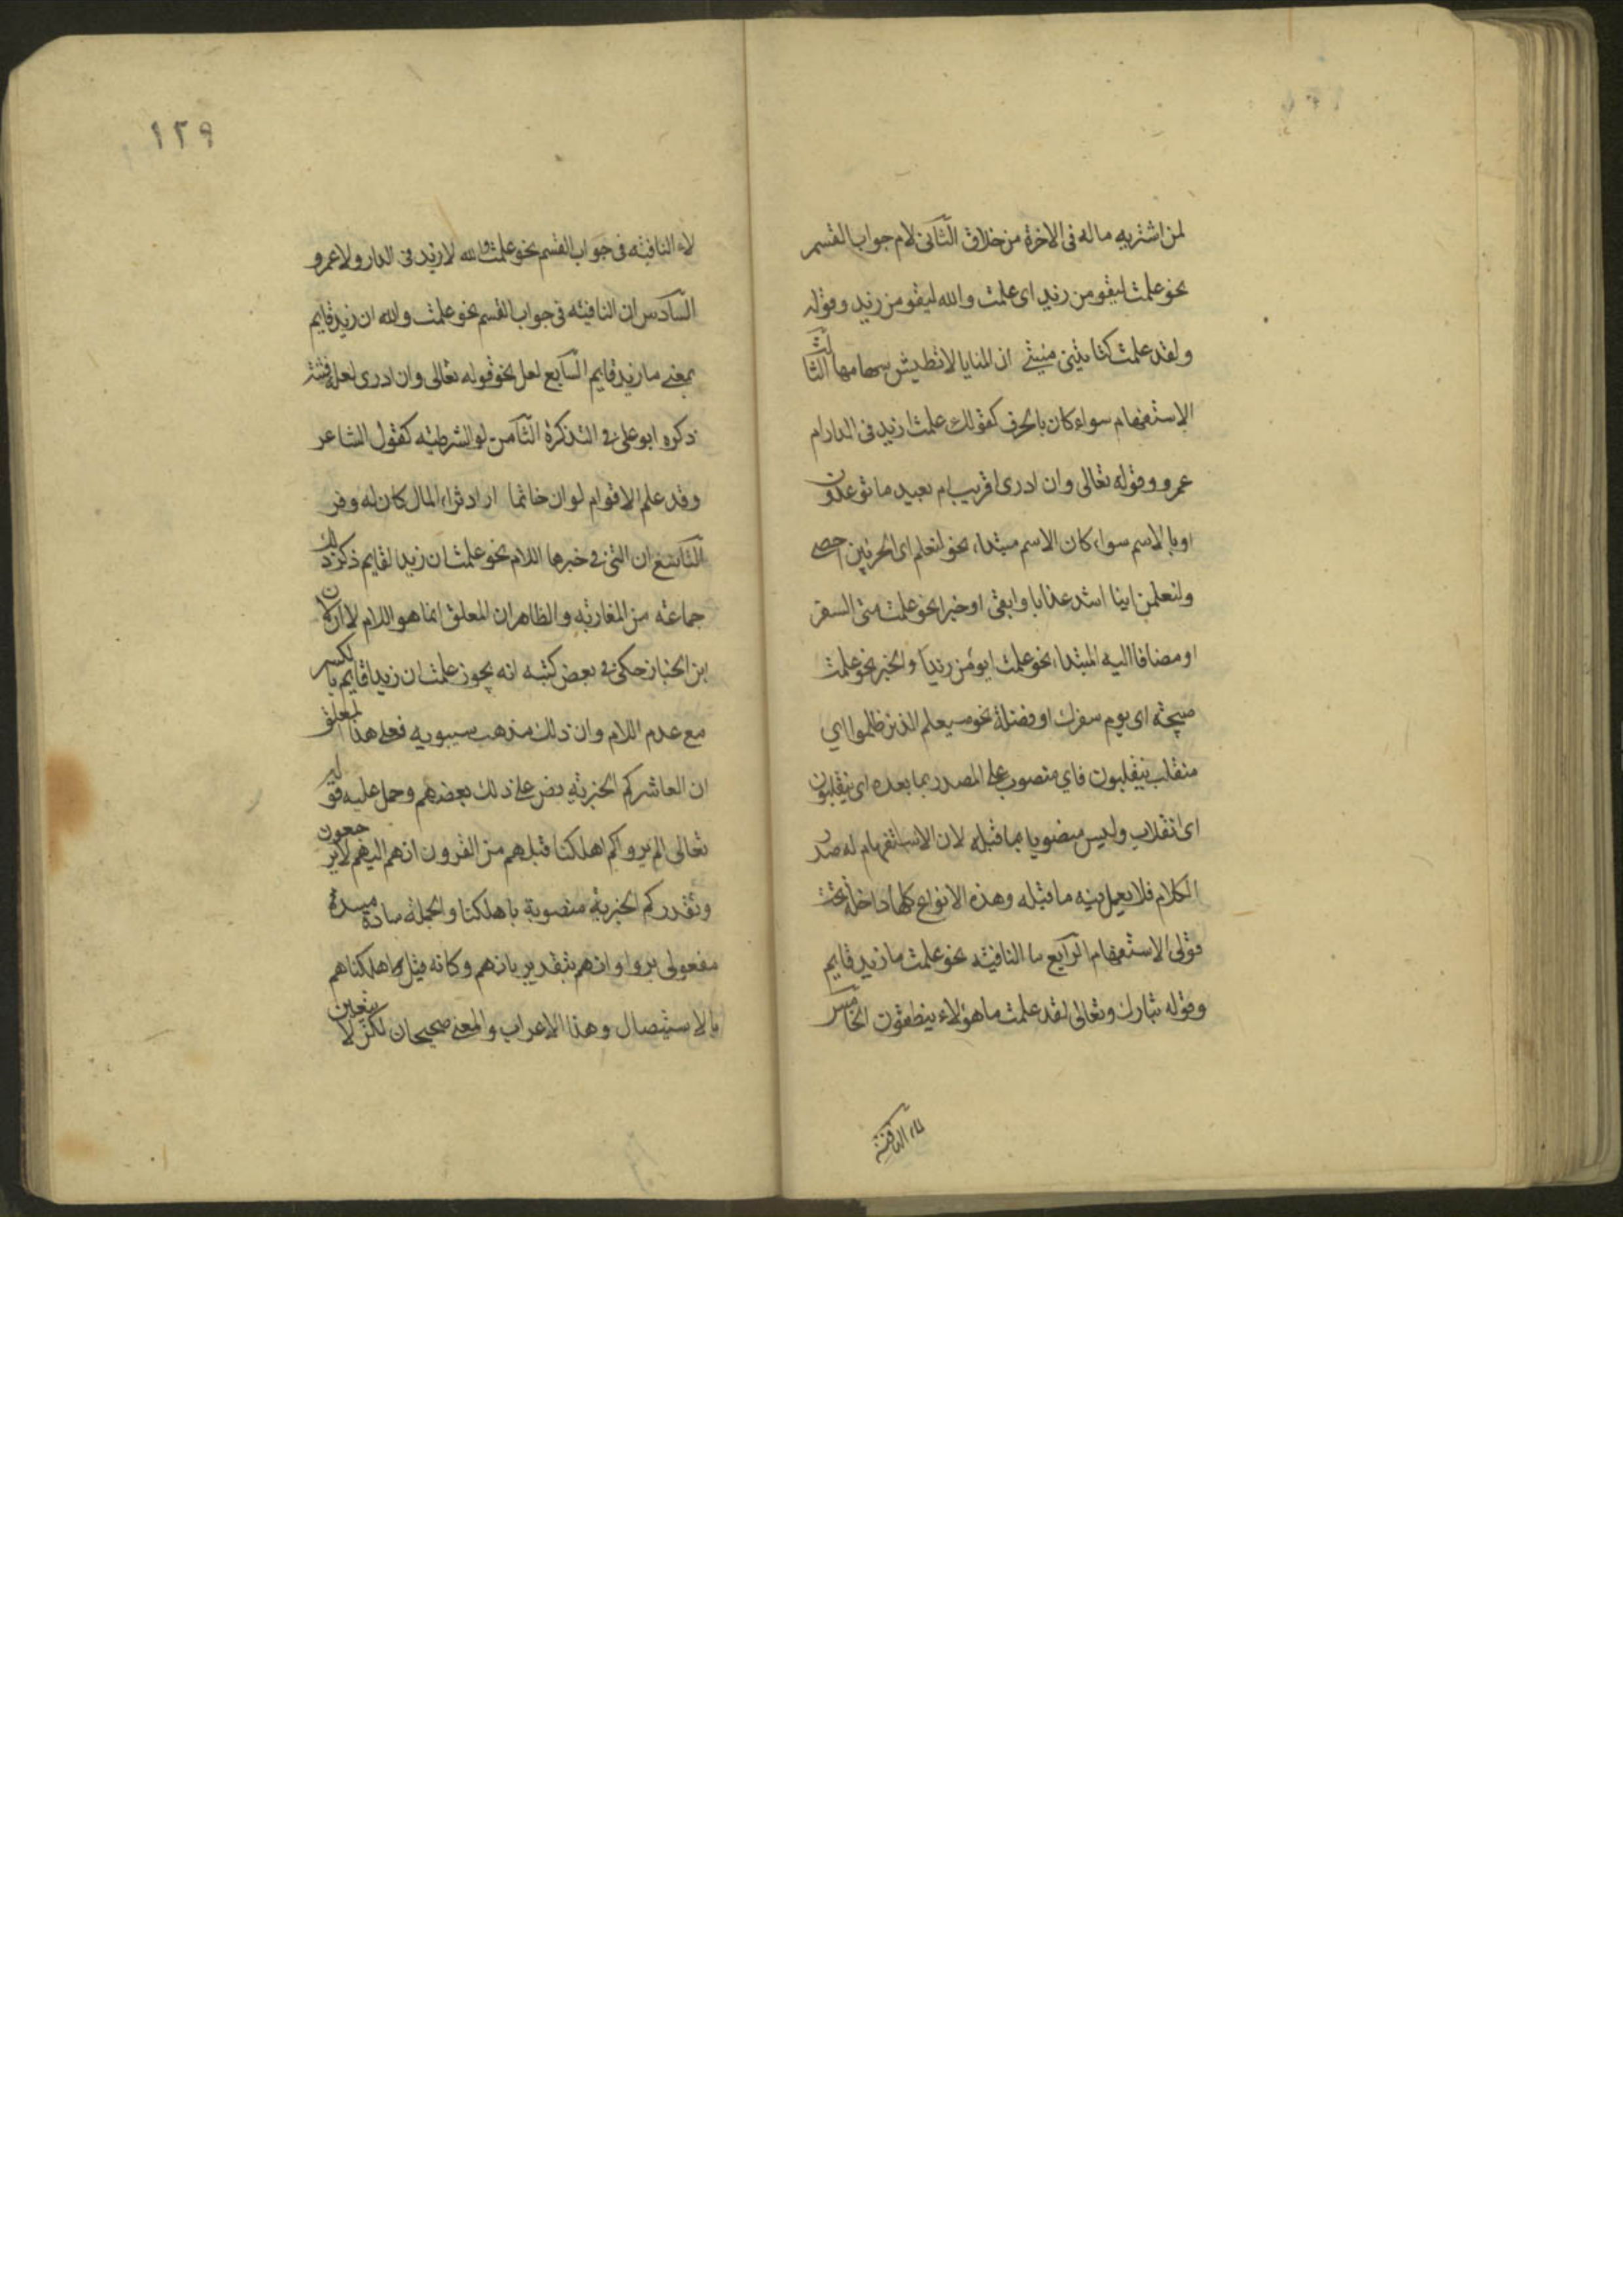 لمن اشتريه ماله فى الاخرة من خلاق الثانى لام جواب القسم
نحو علمت ليقومن زيد اى علمت والله ليقومن زيد وقوله
ولقد علمت لتاتين منيتى ان المنايا لا تطيش سهامها الثالث
الاستفهام سواء كان بالحرف كقولك علمت ازيد فى الدار ام
عمرو وقوله تعالى وان ادرى اقريب ام بعيد ما توعدون
او بالاسم سواء كان الاسم مبتداء نحو لنعلم اى الحزبين احصى
ولتعلمن اينا اشد عذابا وابقى او خبرا نحو علمت متى السفر
او مضافا اليه المبتداء نحو علمت ابو من زيد او الخبر نحو علمت
صبيحة اى يوم سفرك او فضلة نحو سيعلم الذين ظلموا اي
منقلب ينقلبون فاي منصوب على المصدر بما بعده اى ينقلبون
اى انقلاب وليس منصوبا بما قبله لان الاستفهام له صدر
الكلام فلا يعمل فيه ما قبله وهذه الانواع كلها داخلة تحت
قولى الاستفهام الرابع ما النافيه نحو علمت ما زيد قايم
وقوله تبارك وتعالى لقد علمت ما هؤلاء ينطقون الخامس
لاء النافية
١٢٩
لاء النافيه فى جواب القسم نحو علمت والله لا زيد فى الدار ولا عمرو
السادس ان النافيه فى جواب القسم نحو علمت والله ان زيد قايم
بمعنى ما زيد قايم السابع لعل نحو قوله تعالى وان ادرى لعله فتنة
ذكره ابو على فى التذكرة الثامن لو الشرطيه كقول الشاعر
وقد علم الاقوام لو ان حاتما اراد ثراء المال كان له وفر
التاسع ان التى فى خبرها اللام نحو علمت ان زيدا لقايم ذكر ذلك
جماعة من المغاربه والظاهر ان المعلق انما هو اللام لا ان الا ان
ابن الخباز حكى فى بعض كتبه انه يجوز علمت ان زيدا قايم بالكسر
مع عدم اللام وان ذلك مذهب سيبويه فعلى هذا المعلق
ان العاشر كم الخبريه نص على ذلك بعضهم وحمل عليه قوله
تعالى الم يروا كم اهلكنا قبلهم من القرون انهم اليهم لا يرجعون
وتقدر كم الخبرية منصوبة باهلكنا والجملة سادة مسدة
مفعولى يروا وانهم بتقدير بانهم وكانه قيل اهلكناهم
بالاستيصال وهذا الاعراب والمعنى صحيحان لكن لا يتعين